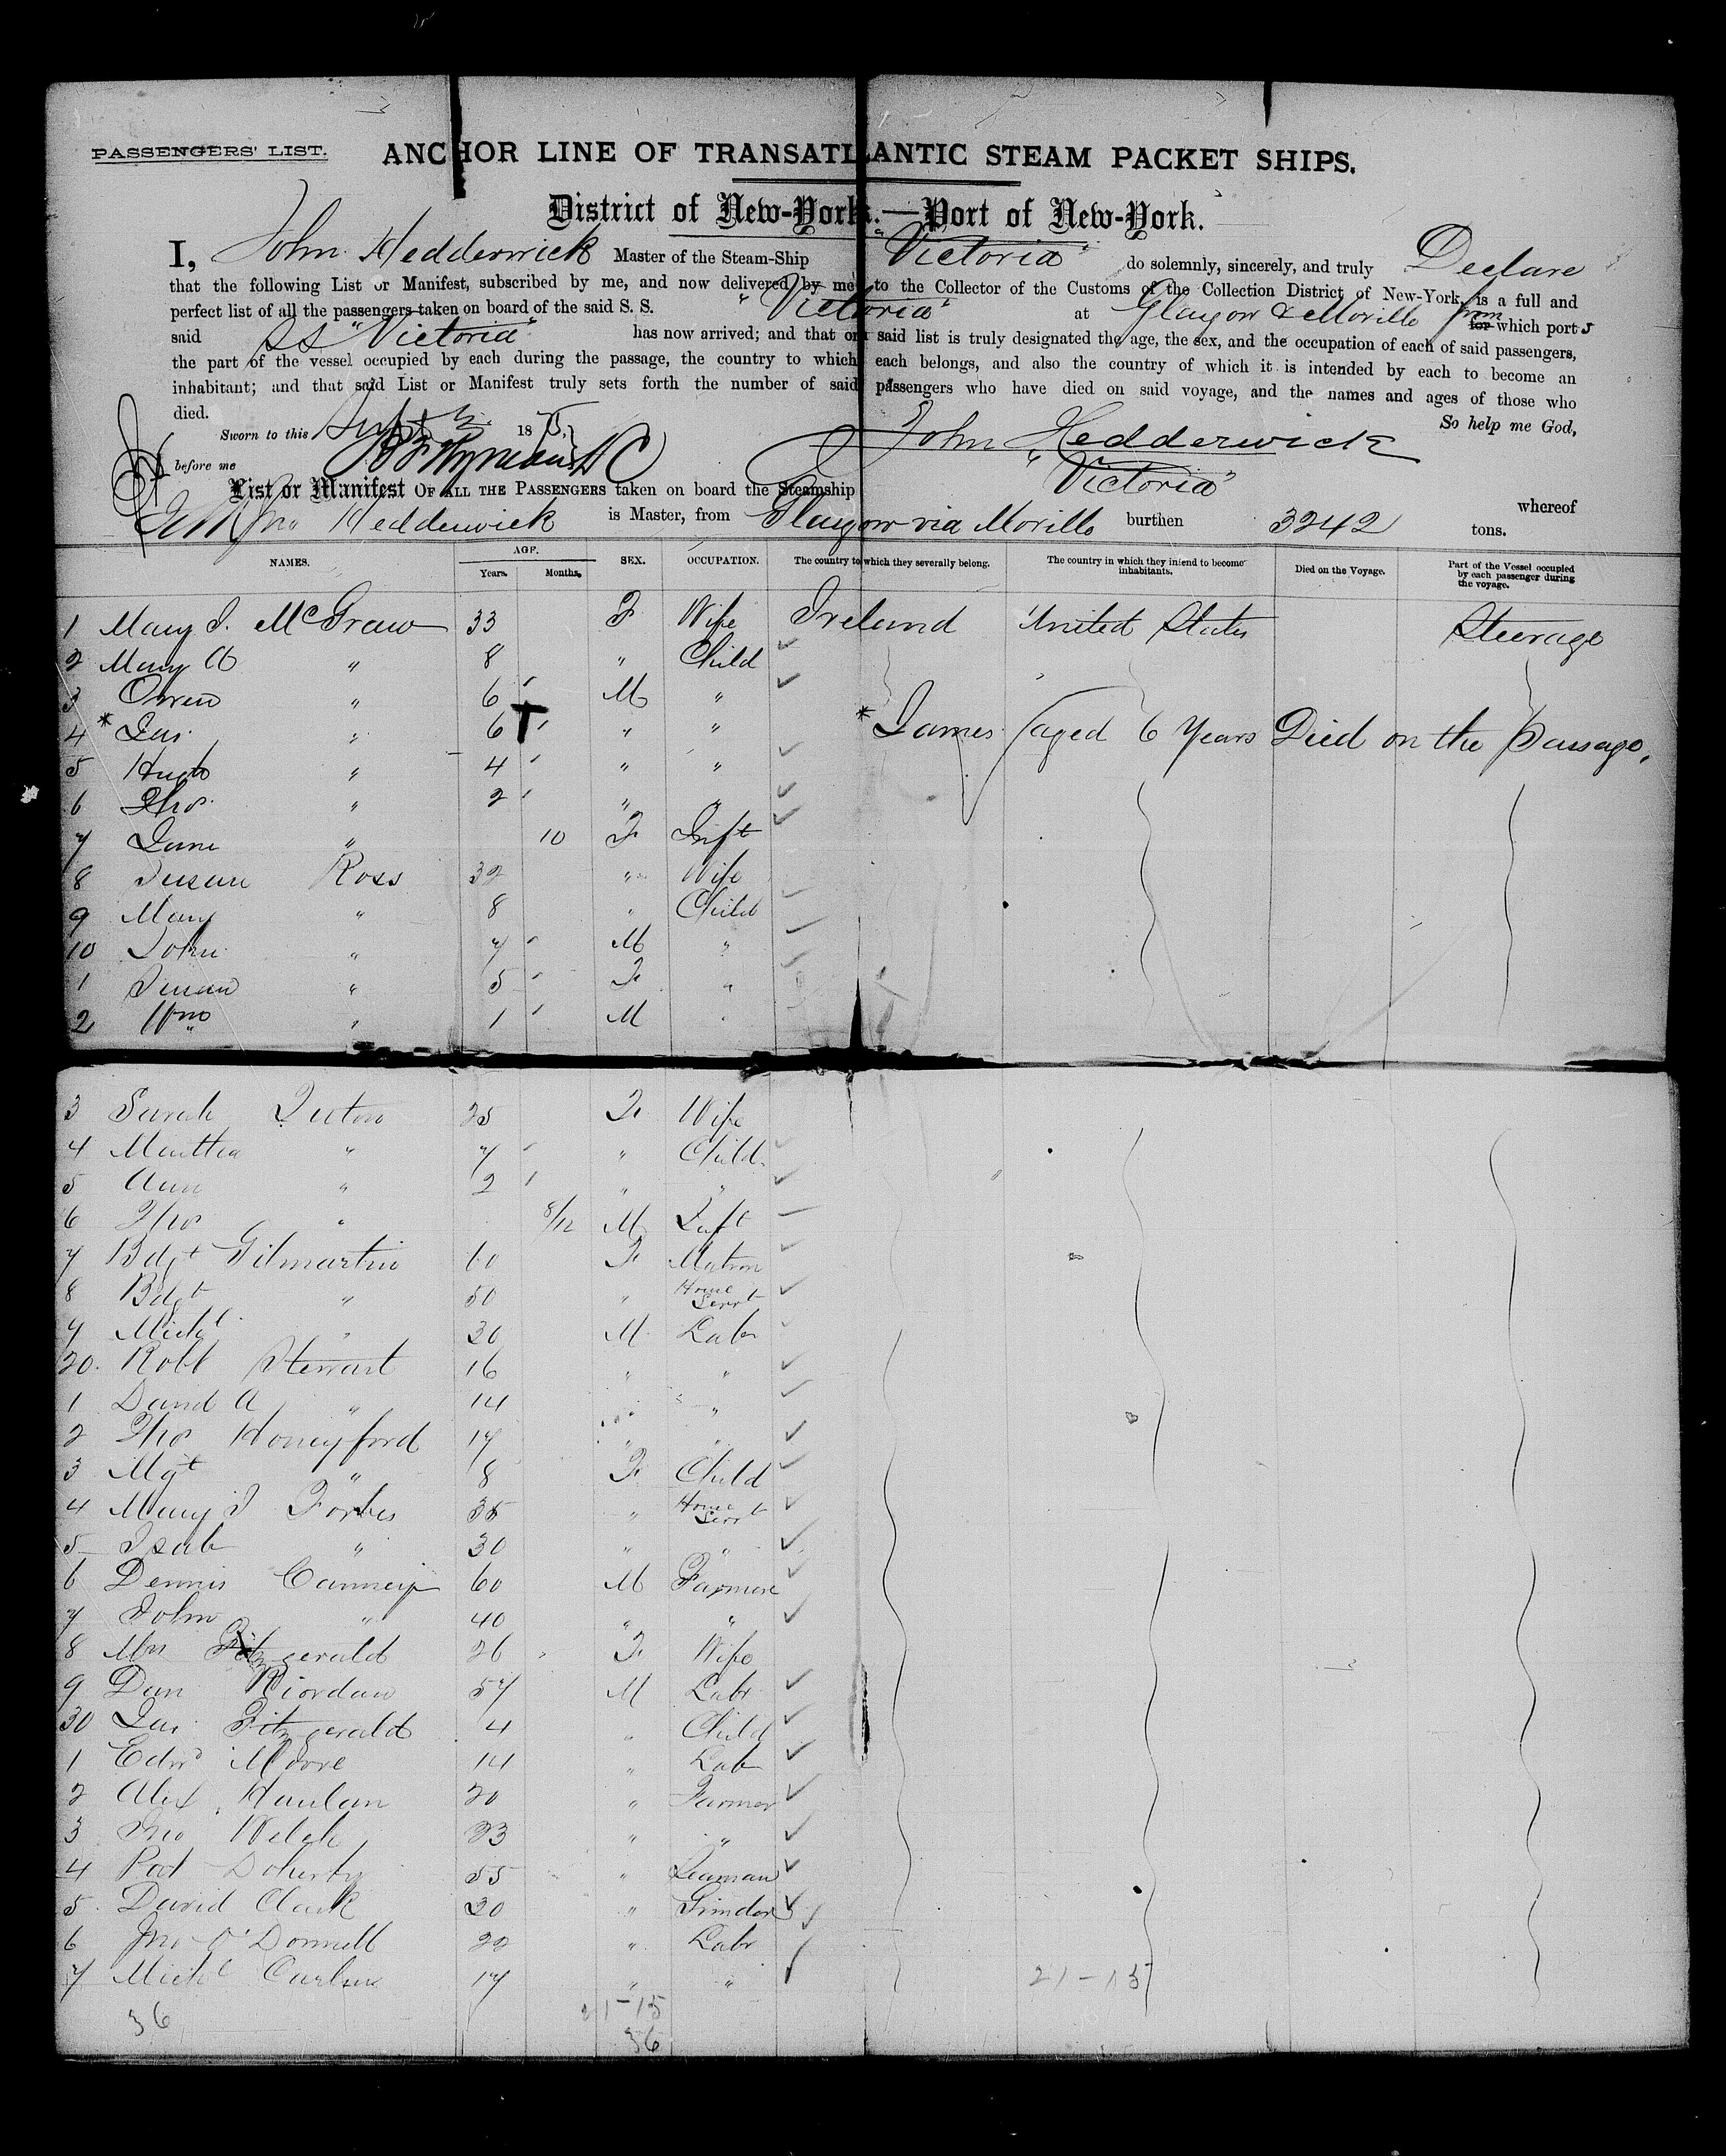 PASSENGERS' LIST.
ANCHOR LINE OF TRANSATLANTIC STEAM PACKET SHIPS.
District of New-York.—Port of New-York.
I, John Hedderwick Master of the Steam-Ship "Victoria" do solemnly, sincerely, and truly Declare
that the following List or Manifest, subscribed by me, and now delivered by me to the Collector of the Customs of the Collection District of New-York, is a full and
perfect list of all the passengers taken on board of the said S. S. "Victoria" at Glasgow & Moville from for which ports
said SS "Victoria" has now arrived; and that on said list is truly designated the age, the sex, and the occupation of each of said passengers,
the part of the vessel occupied by each during the passage, the country to which each belongs, and also the country of which it is intended by each to become an
inhabitant; and that said List or Manifest truly sets forth the number of said passengers who have died on said voyage, and the names and ages of those who
died. So help me God,
Sworn to this Sept 1875, John Hedderwick
before me
List or Manifest OF ALL THE PASSENGERS taken on board the Steamship "Victoria" whereof
Jno Hedderwick is Master, from Glasgow via Moville burthen 3242 tons.
NAMES. AGE. Years. Months. SEX. OCCUPATION. The country to which they severally belong. The country in which they intend to become inhabitants. Died on the Voyage. Part of the Vessel occupied by each passenger during the voyage.
1 Mary J. McGraw 33 F Wife Ireland United States Steerage
2 Mary A " 8 " Child
3 Owen " 6 M "
4 * Jas. " 6 " " * James (aged 6 Years Died on the Passage.
5 Hugh " 4 " "
6 Thos. " 2 " "
7 Jane " 10 F Inft
8 Susan Ross 32 " Wife
9 Mary " 8 " Child
10 John " 7 M "
1 Susan " 5 F "
2 Wm " 1 M "
3 Sarah 25 F Wife
4 Martha " 7 " Child
5 Ann " 2 " "
6 Thos " 8/12 M Inft
7 Bdgt Gilmartin 60 F Matron
8 Bdgt " 50 " House Servt
9 Michl " 30 M Labr
20. Robt Stewart 16 " "
1 David A " 14 " "
2 Thos Honeyford 17 " "
3 Mgt " 8 F Child
4 Mary J Forbes 35 " House Servt
5 Isab " 30 " "
6 Dennis 60 M Farmer
7 John " 40 " "
8 Mrs Fitzgerald 26 F Wife
9 Dan Riordan 57 M Labr
30 Jas. Fitzgerald 4 " Child
1 Edwd Moore 14 " Lab
2 Alex. Hanlan 20 " Farmer
3 Jno Welch 23 " "
4 Pat Doherty 55 " Seaman
5. David Clark 20 "
6 Jno O'Donnell 22 " Labr
7 Michl 17 " "
21-15
36 21-15
36